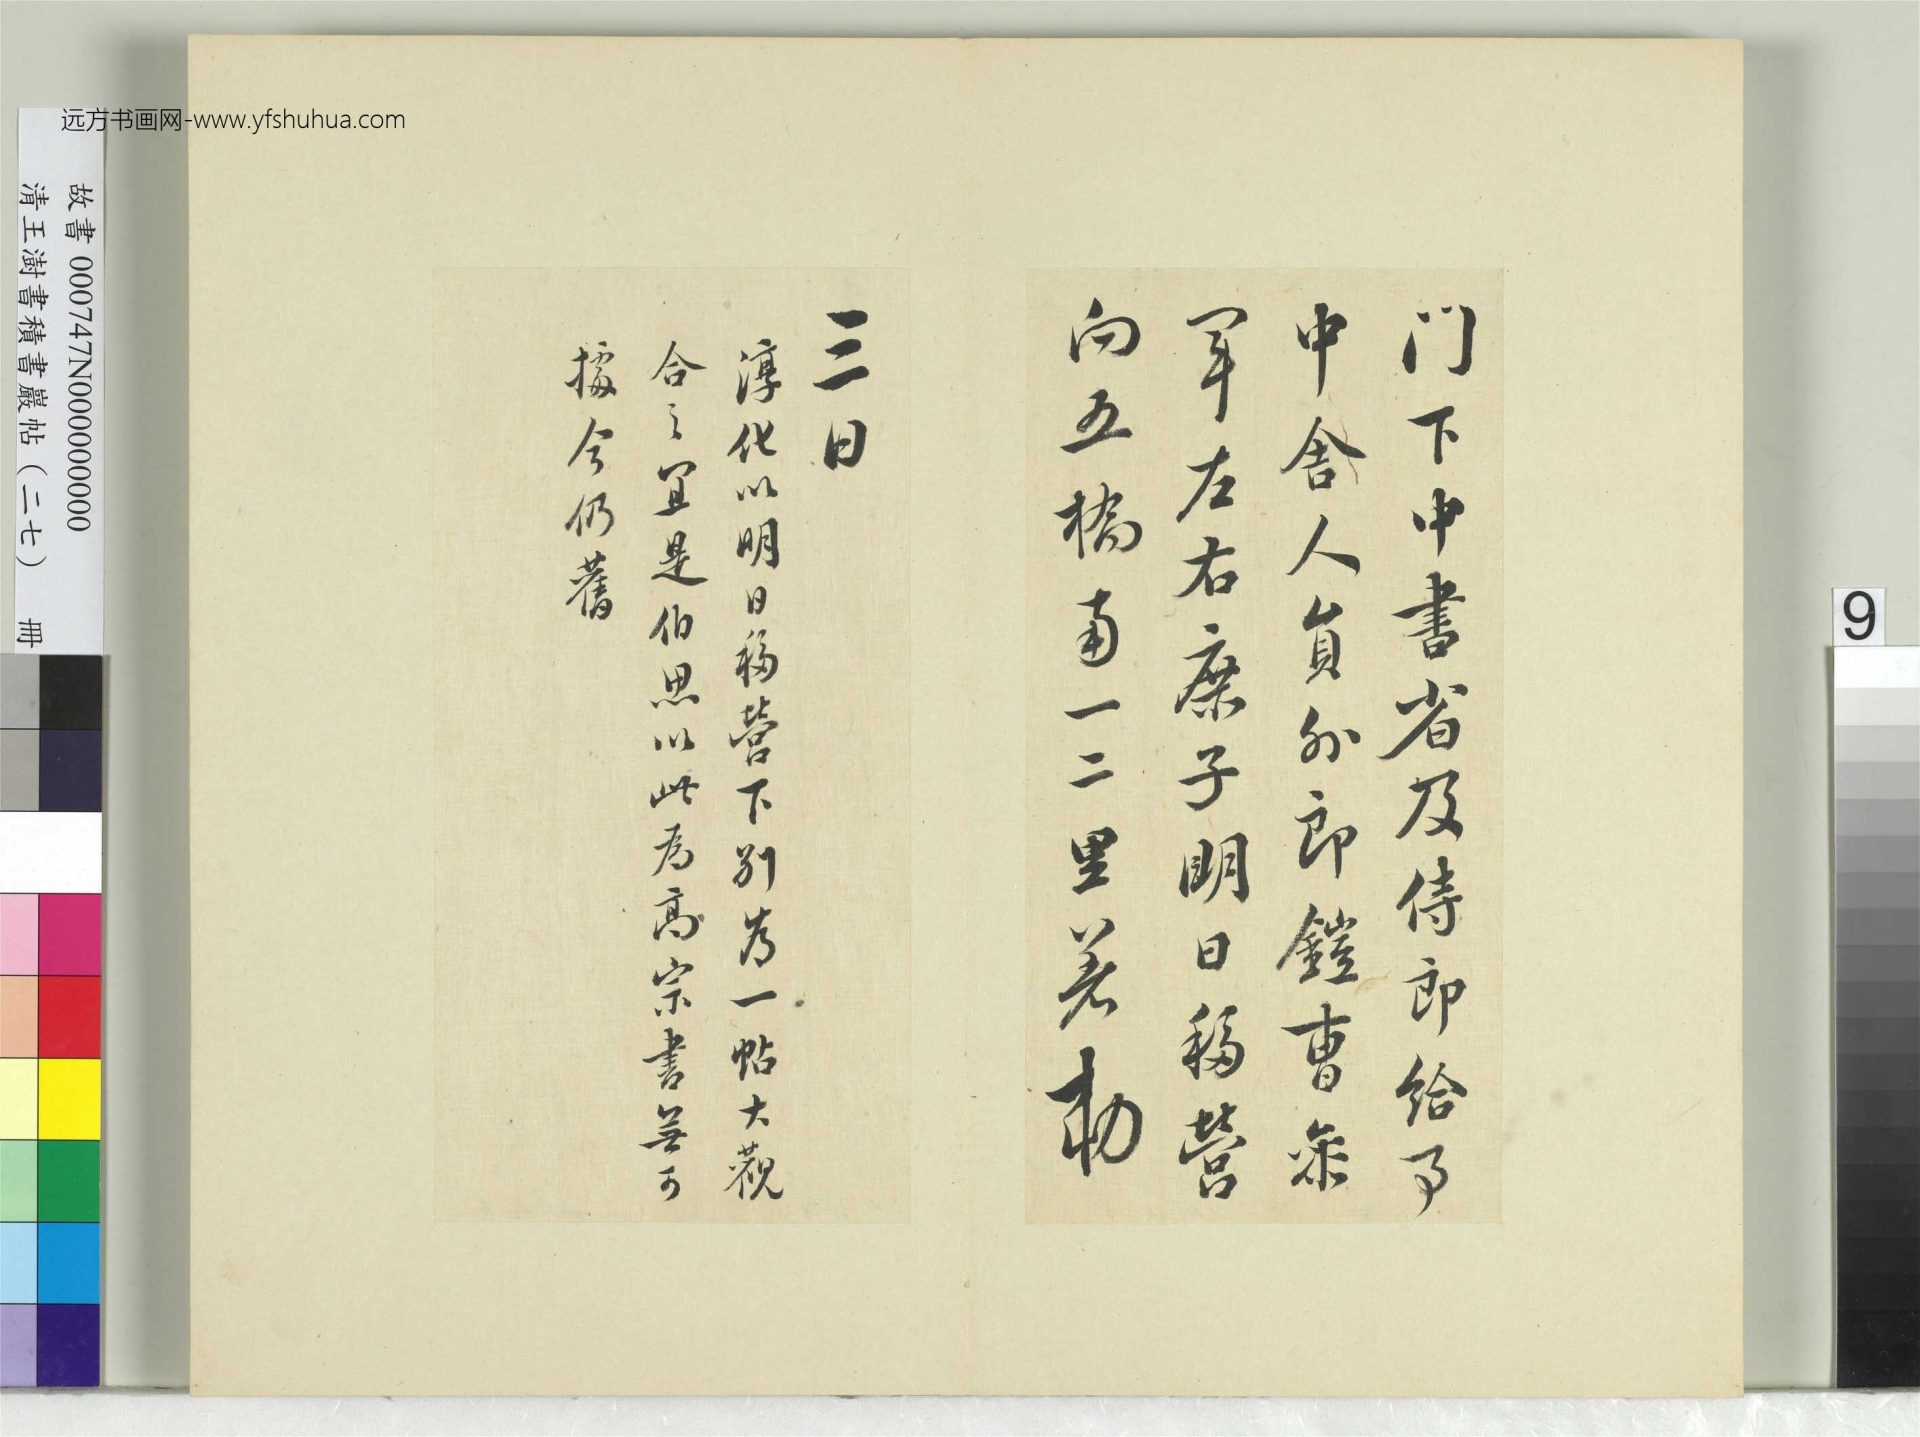 远方书画网-www.yfshuhua.com
故書 000747N000000000
清王澍書積書巖帖（二七） 冊
9
门下中書省及侍郎給事
中舍人員外郎鎧曹參
軍左右庶子明日移營
向五橋南一二里著勅
三日
淳化以明日移營下别為一帖大觀
合之宜是伯思以此為高宗書無可
據今仍舊